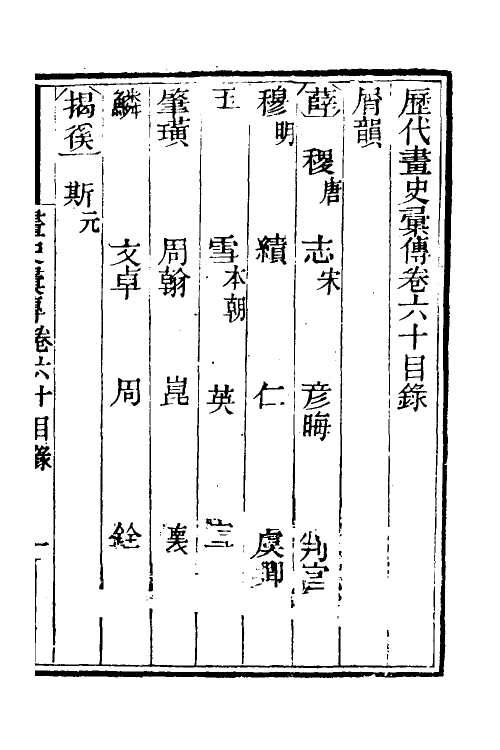 歷代畫史彙傳卷六十目錄
屑韻
薛 稷唐 志宋 彥晦 判官
穆明 續 仁 虞卿
王 雪本朝 英 宣
肇璜 周翰 崑 襄
鱗 文卓 周 銓
揭傒 斯元
畫史彙傳卷六十目錄 一